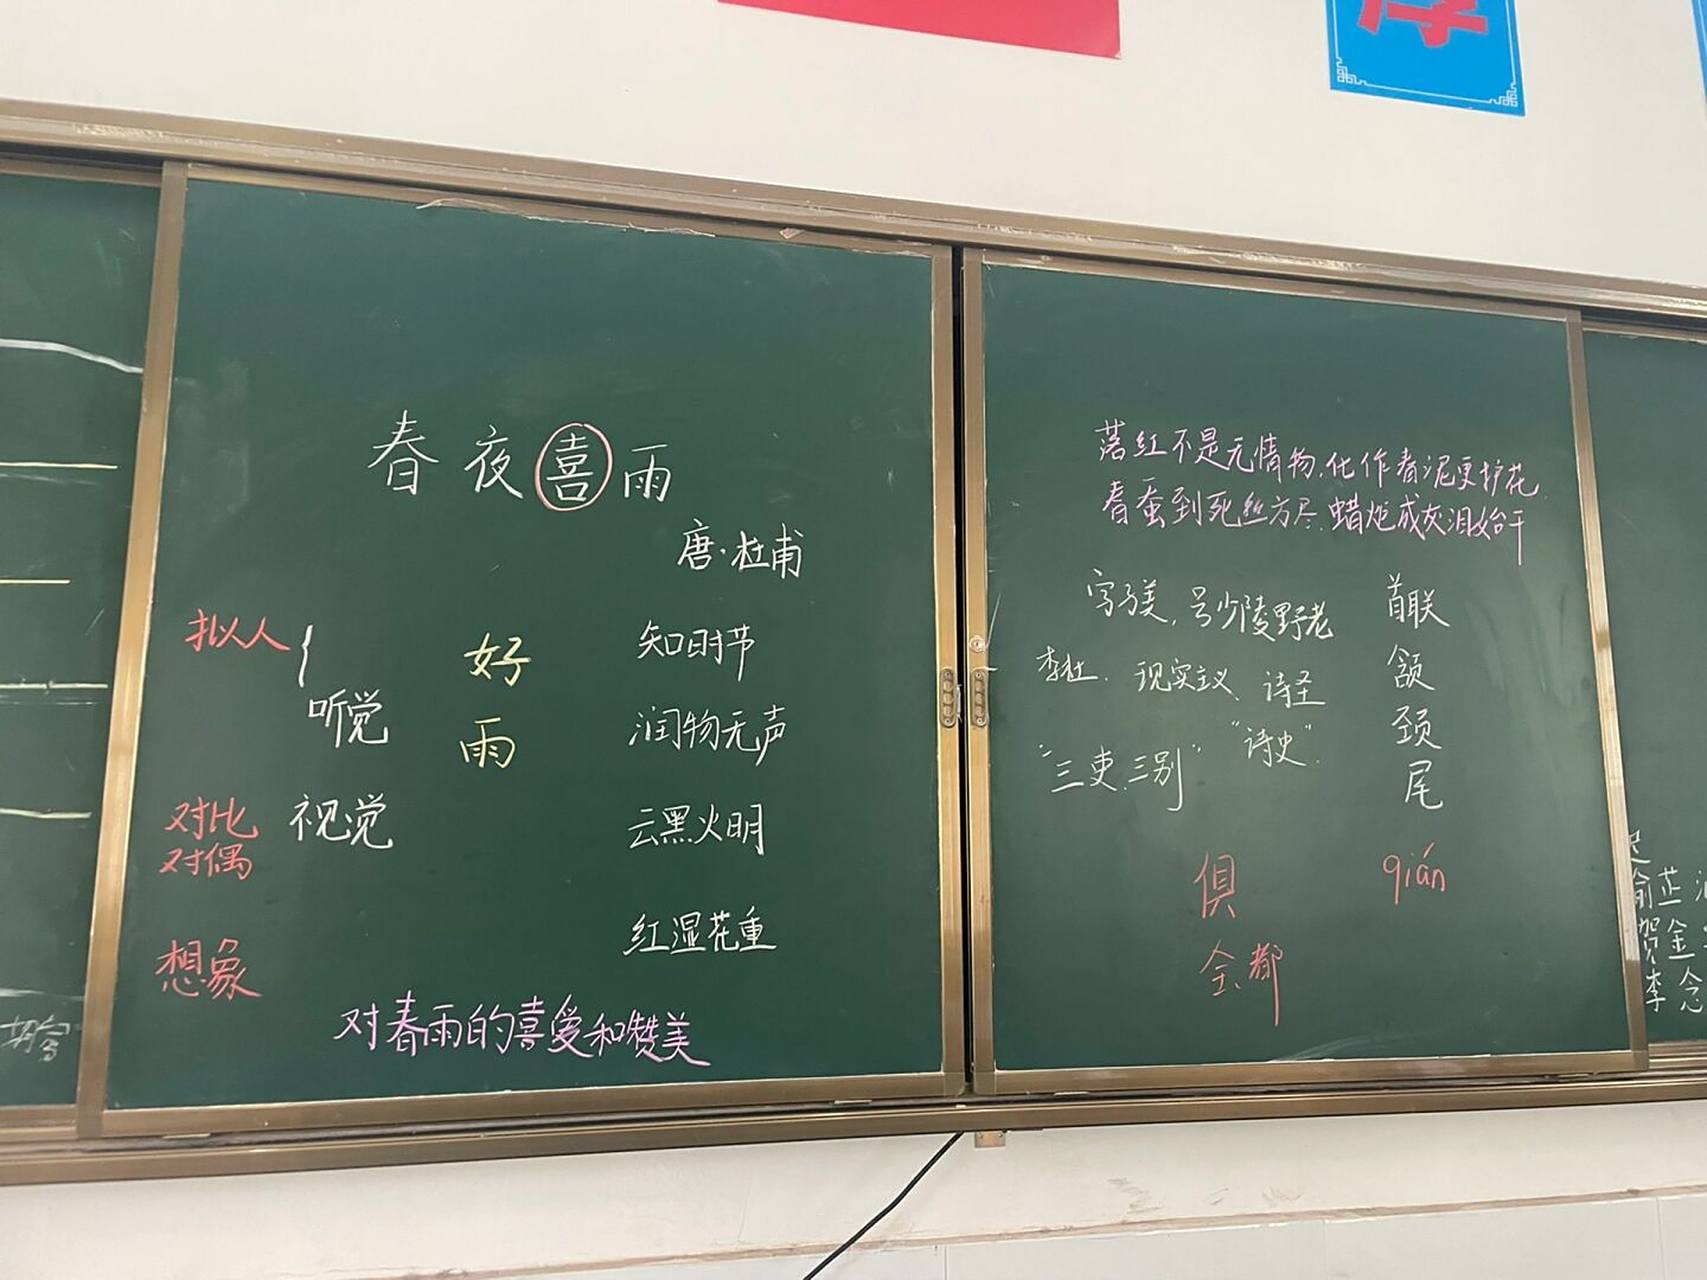 厚
春夜喜雨
唐·杜甫
拟人
好
知时节
听觉
雨
润物无声
对比
视觉
云黑火明
对偶
红湿花重
想象
对春雨的喜爱和赞美
落红不是无情物,化作春泥更护花.
春蚕到死丝方尽,蜡炬成灰泪始干
字子美,号少陵野老
首联
李杜.现实主义、诗圣
颔
"三吏、三别"
"诗史".
颈
尾
俱
qián
全、都
俞芷
贺金
李念